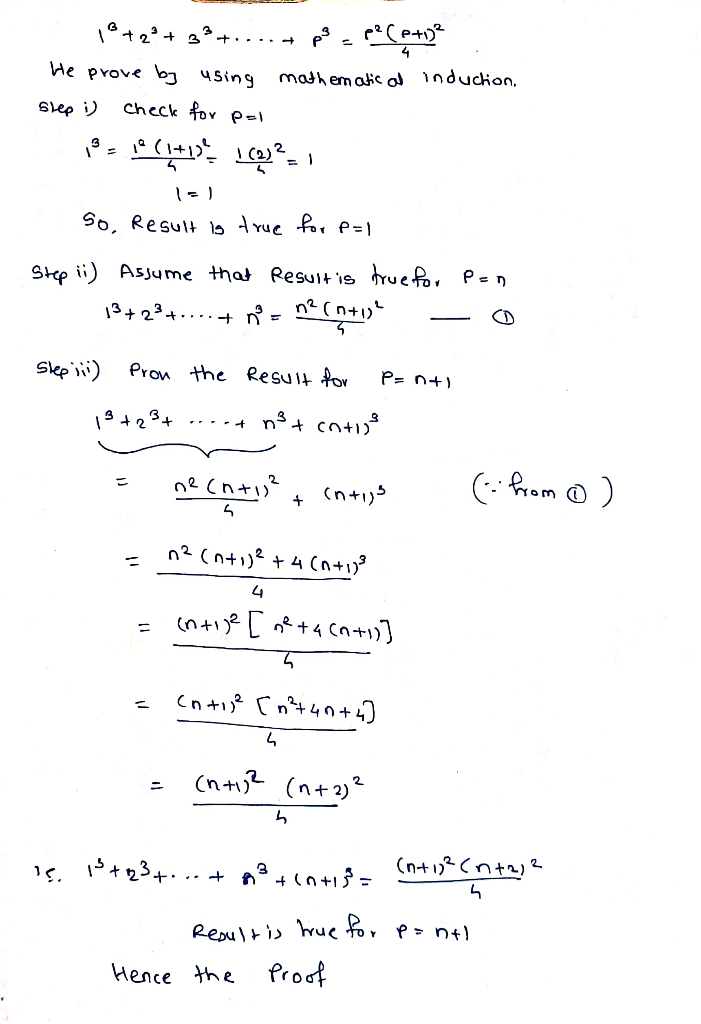 1³ + 2³ + 3³ + ..... + p³ = p²(p+1)²/4
We prove by using mathematical induction.
Step i) Check for p=1
1³ = 1²(1+1)²/4 = 1(2)²/4 = 1
1 = 1
So, Result is true for P=1
Step ii) Assume that Result is true for P = n
1³ + 2³ + ..... + n³ = n²(n+1)²/4 — ①
Step iii) Prove the Result for P = n+1
1³ + 2³ + ..... + n³ + (n+1)³
= n²(n+1)²/4 + (n+1)³ (∵ from ①)
= n²(n+1)² + 4(n+1)³/4
= (n+1)² [n² + 4(n+1)]/4
= (n+1)² [n² + 4n + 4]/4
= (n+1)² (n+2)²/4
i.e. 1³ + 2³ + ... + n³ + (n+1)³ = (n+1)²(n+2)²/4
Result is true for P = n+1
Hence the Proof